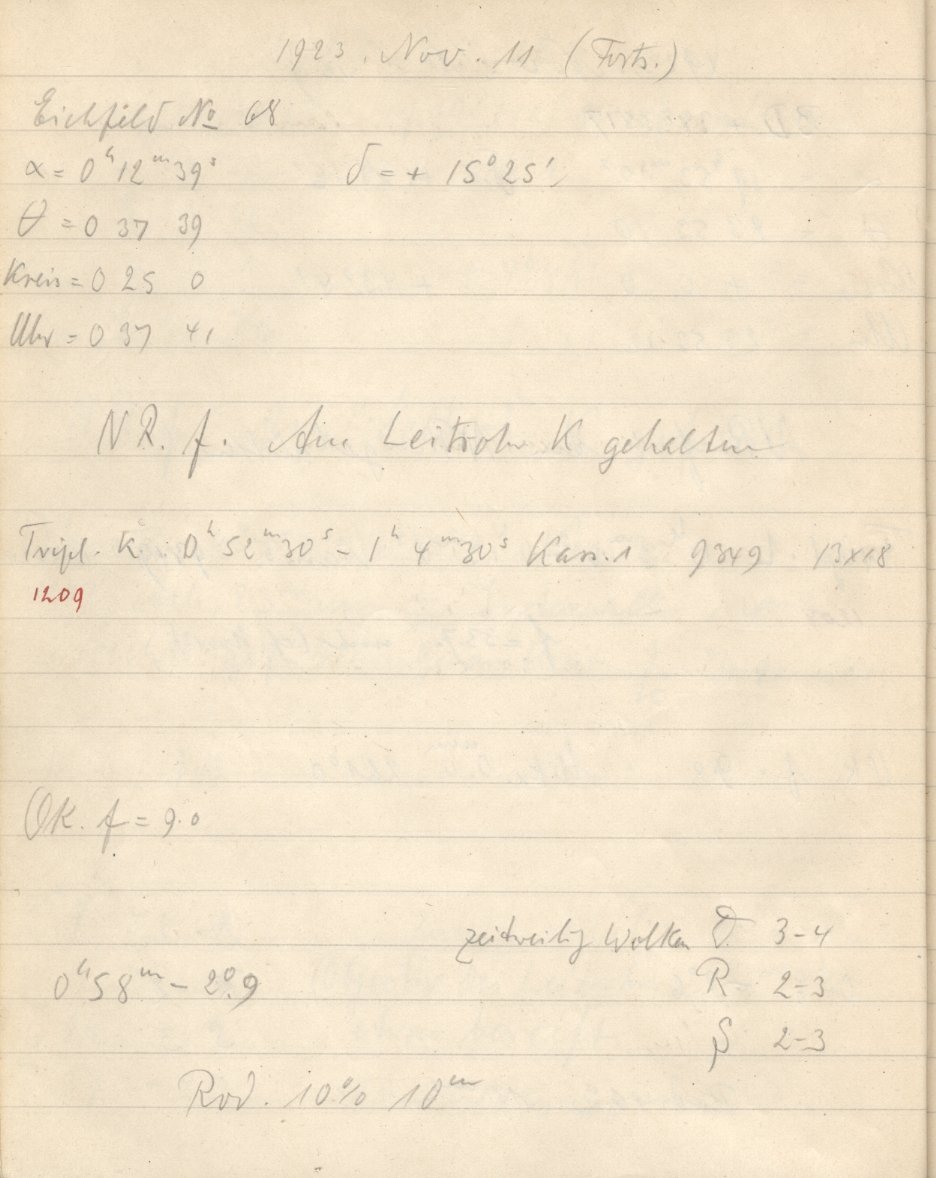 1923. Nov. 11 (Forts.)
Eichfeld No 68
α = 0ʰ 12ᵐ 39ˢ δ = + 15° 25'
θ = 0 37 39
Kreis = 0 25 0
Uhr = 0 37 41
N R. f. Am Leitrohr K gehalten
Tripl. K. 0ʰ 52ᵐ 30ˢ – 1ʰ 4ᵐ 30ˢ Kass. 1 9349 13x18
1209
OK. f = 9.0
zeitweilig Wolken D. 3–4
0ʰ 58ᵐ – 2°.9 R 2–3
S 2–3
Rod. 10% 10ᵐ